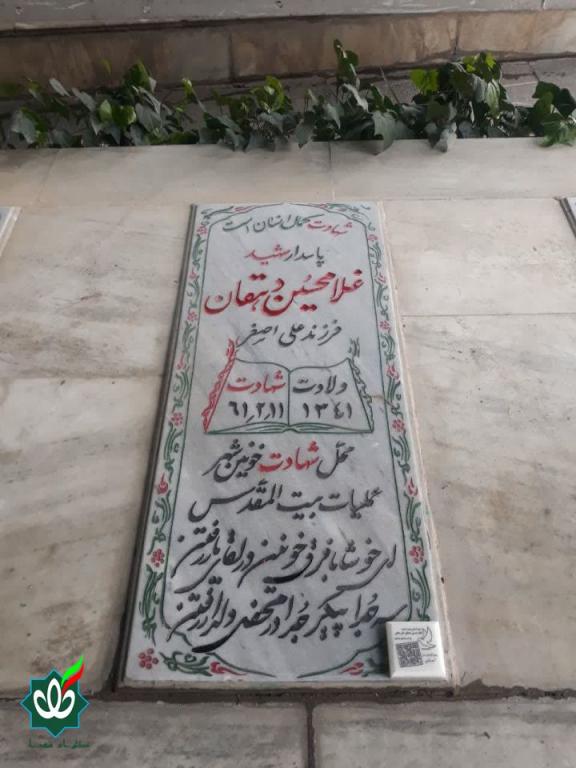 شهادت کمال انسان است
پاسدار شهید
غلامحسین دهقان
فرزند علی اصغر
ولادت شهادت
۱۳۴۱ ۶۱٫۲٫۱۱
محل شهادت خونین شهر
عملیات بیت المقدس
ای خوشا با فرق خونین در لقای یار رفتن
سر جدا پیکر جدا در محفل دلدار رفتن